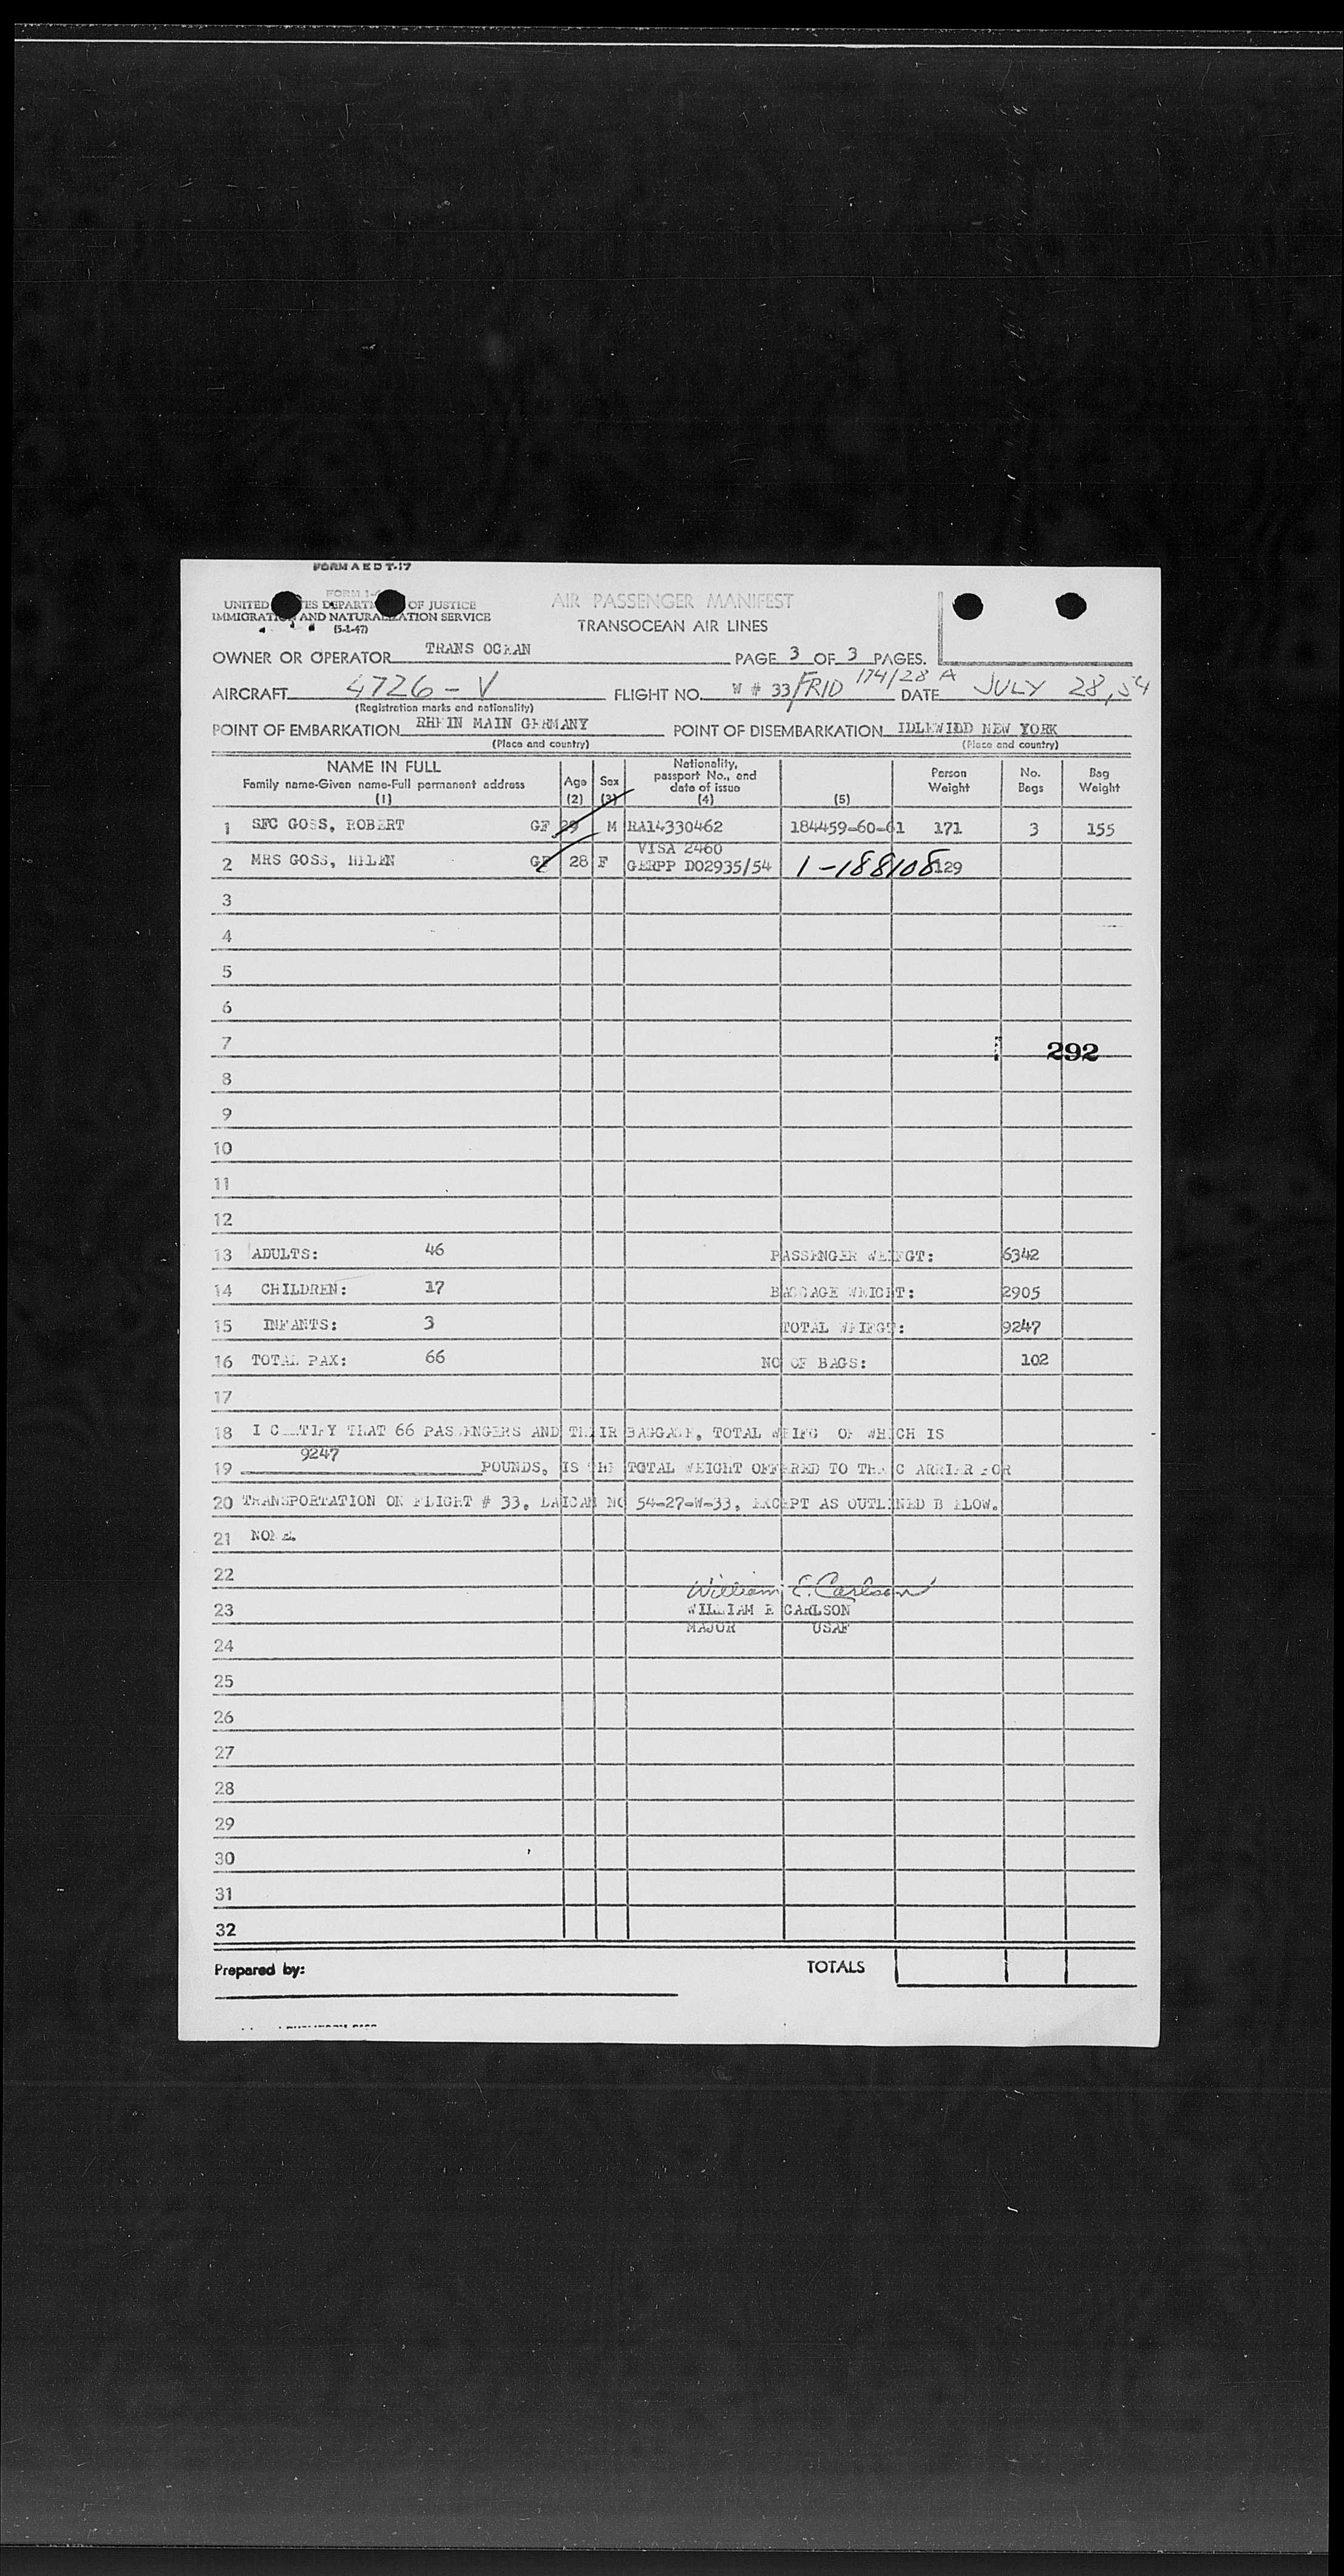 FORM A E D T-17
FORM I-
UNITED STATES DEPARTMENT OF JUSTICE
IMMIGRATION AND NATURALIZATION SERVICE
(5-1-47)
AIR PASSENGER MANIFEST
TRANSOCEAN AIR LINES
OWNER OR OPERATOR TRANS OCEAN PAGE 3 OF 3 PAGES.
AIRCRAFT 4726-V FLIGHT NO. W # 33/FRID 174/28 A DATE JULY 28,54
(Registration marks and nationality)
POINT OF EMBARKATION RHEIN MAIN GERMANY POINT OF DISEMBARKATION IDLEWILD NEW YORK
(Place and country) (Place and country)
NAME IN FULL
Family name-Given name-Full permanent address
(1)
Age
(2)
Sex
(3)
Nationality,
passport No., and
date of issue
(4)
(5)
Person
Weight
No.
Bags
Bag
Weight
1 SFC GOSS, ROBERT GF 29 M RA14330462 184459-60-61 171 3 155
VISA 2460
2 MRS GOSS, HELEN GF 28 F GERPP D02935/54 1-188108 129
3
4
5
6
7 292
8
9
10
11
12
13 ADULTS: 46 PASSENGER WEIFGT: 6342
14 CHILDREN: 17 BAGGAGE WEIGHT: 2905
15 INFANTS: 3 TOTAL WEIFGT: 9247
16 TOTAL PAX: 66 NO OF BAGS: 102
17
18 I CERTIFY THAT 66 PASSENGERS AND THEIR BAGGAGE, TOTAL WEIFG OF WHICH IS
9247
19 POUNDS, IS THE TOTAL WEIGHT OFFERED TO THE C ARRIER FOR
20 TRANSPORTATION ON FLIGHT # 33, LAICAN NO 54-27-W-33, EXCEPT AS OUTLINED BELOW.
21 NONE.
22 William E. Carlson
23 WILLIAM E CARLSON
MAJOR USAF
24
25
26
27
28
29
30
31
32
Prepared by: TOTALS